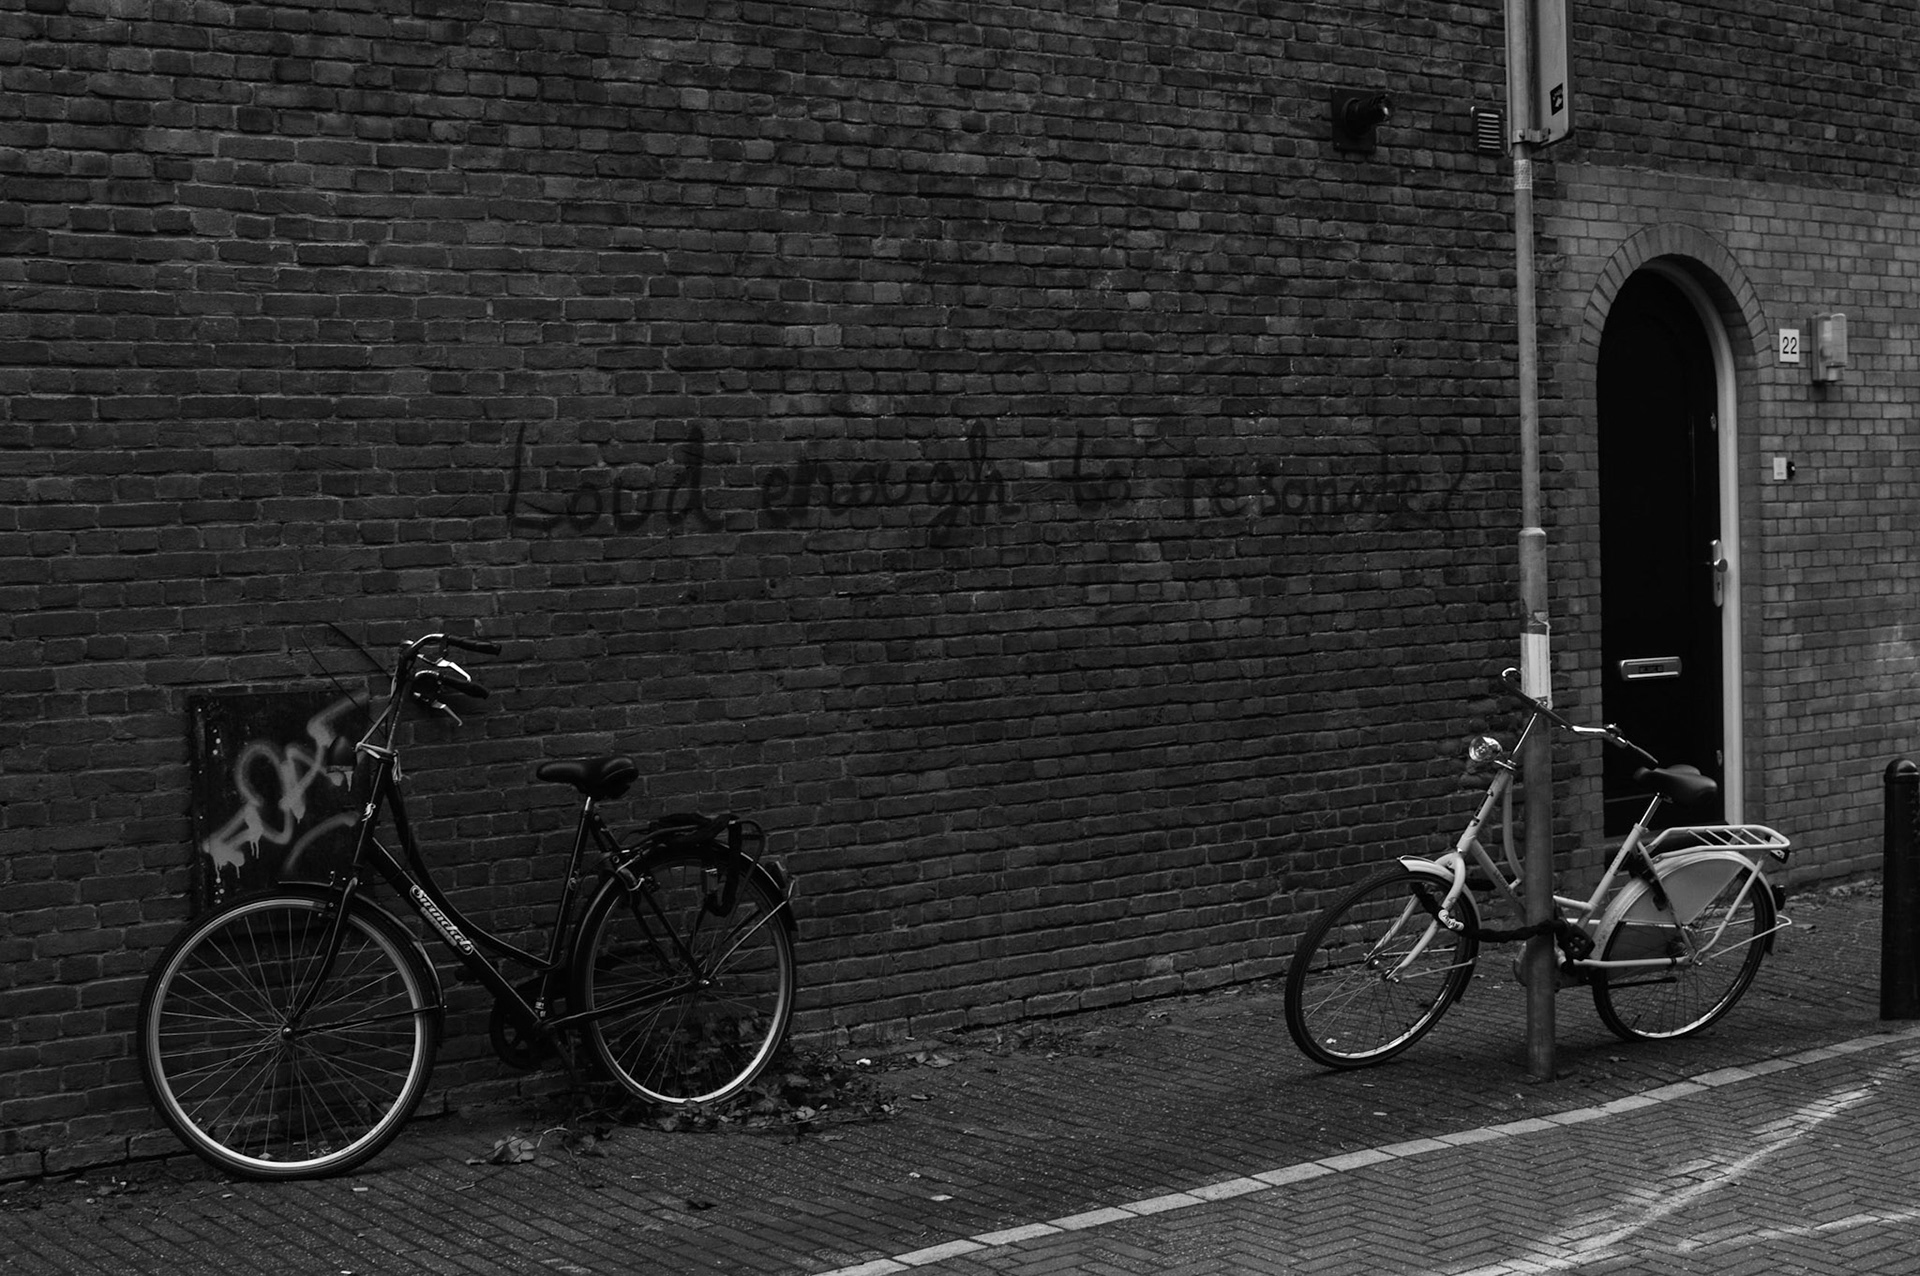 Loud enough to resonate?
22